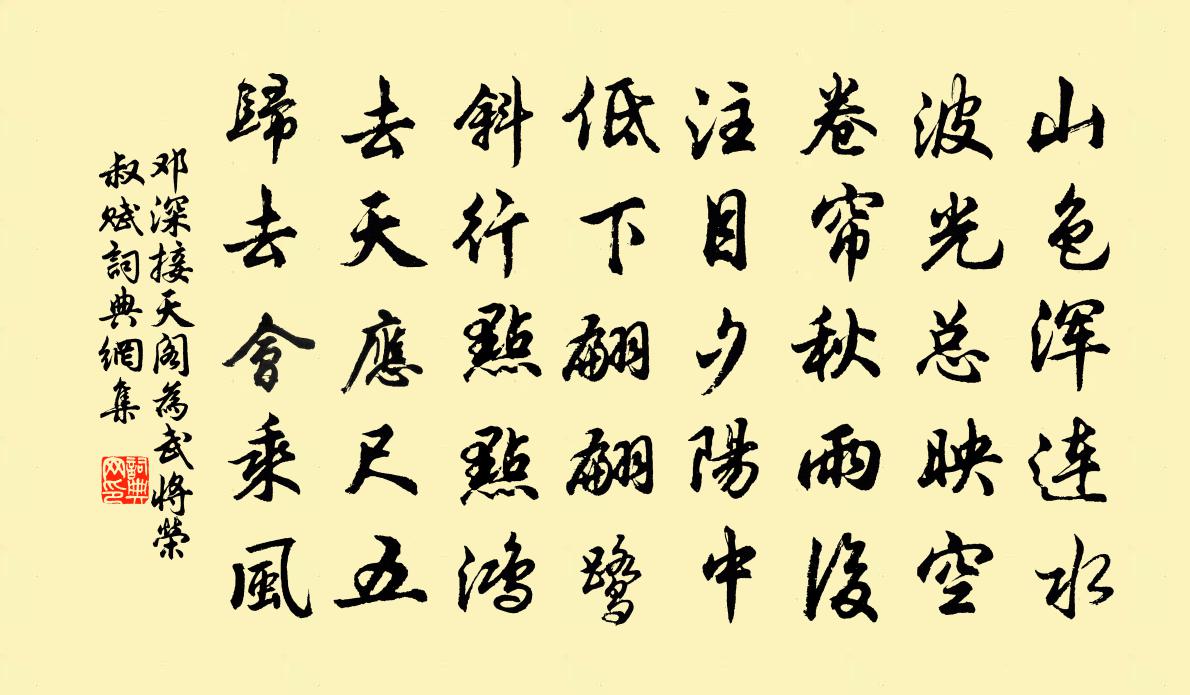 山色浑连水
波光总映空
卷帘秋雨後
注目夕陽中
低下翩翩鹭
斜行點點鴻
去天應尺五
歸去會乘風
邓深接天阁為武將榮
叔赋詞典網集
詞典网印